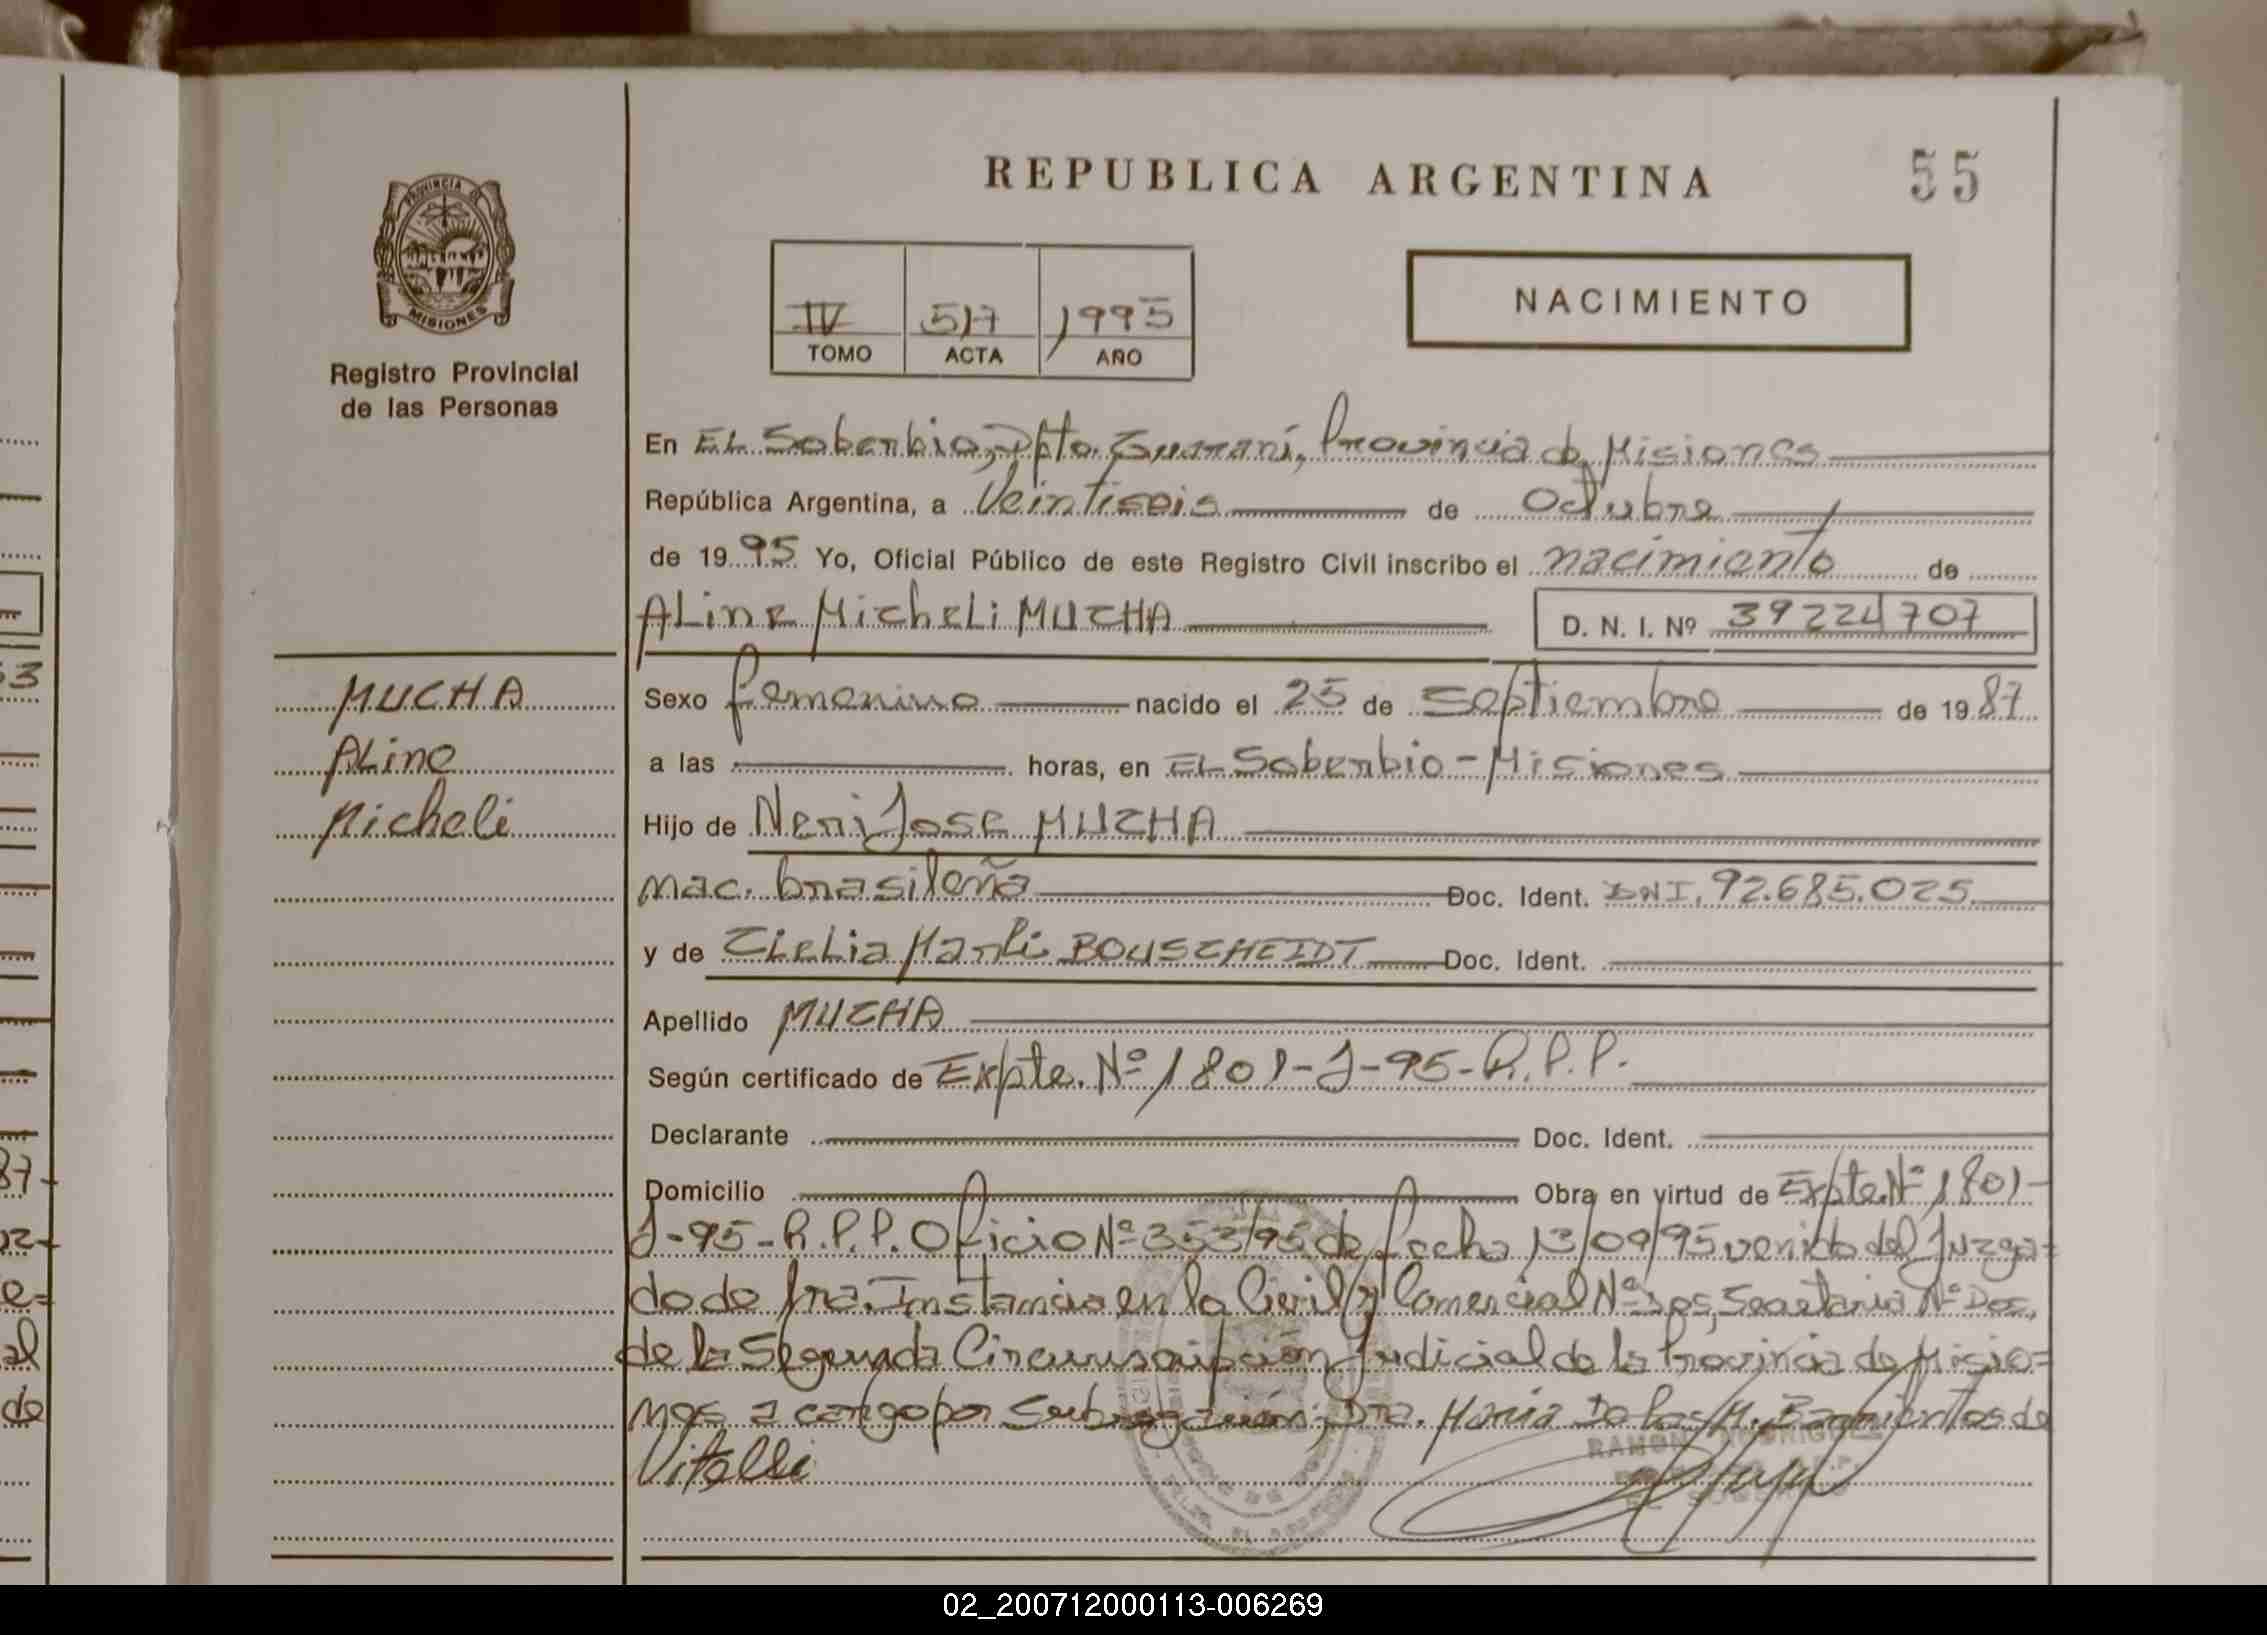 REPUBLICA ARGENTINA
55
PROVINCIA DE
MISIONES
Registro Provincial
de las Personas
IV 517 1995
TOMO ACTA AÑO
NACIMIENTO
En EL Soberbio, Dpto. Guaraní, Provincia de Misiones
República Argentina, a Veintiseis de Octubre
de 1995 Yo, Oficial Público de este Registro Civil inscribo el nacimiento de
ALine Micheli MUCHA D. N. I. Nº 39224707
MUCHA
ALine
Micheli
Sexo femenino nacido el 25 de Septiembre de 1987
a las horas, en EL Soberbio - Misiones
Hijo de Neri Jose MUCHA
nac. brasileña Doc. Ident. DNI. 92.685.025
y de CLeLia Marli BOUSCHEIDT Doc. Ident.
Apellido MUCHA
Según certificado de Expte. Nº 1801-J-95-R.P.P.
Declarante Doc. Ident.
Domicilio Obra en virtud de Expte. Nº 1801-
J-95-R.P.P. Oficio Nº 353/95 de fecha 13/09/95 venido del Juzga=
do de 1ra. Instancia en lo Civil y Comercial Nº Dos, Secretaria Nº Dos,
de la Segunda Circunscripción Judicial de la Provincia de Misio=
nes a cargo por Subrogación, Dra. María de las M. Barrientos de
Vitelli
RAMON RODRIGUEZ
EL SOBERBIO
53
87-
02-
e=
al
de
02_200712000113-006269